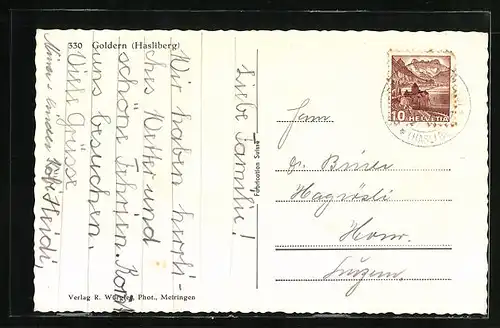 330 Goldern (Hasliberg)
Liebe Familie!
Wir haben herrli-
ches Wetter und
schöne Ferien. Kommt
uns besuchen.
Viele Grüsse
Heidi,
Fabrication Suisse
Verlag R. Würgler, Phot., Meiringen
10 HELVETIA
Fam.
Hagrösli
Horw.
Luzern.